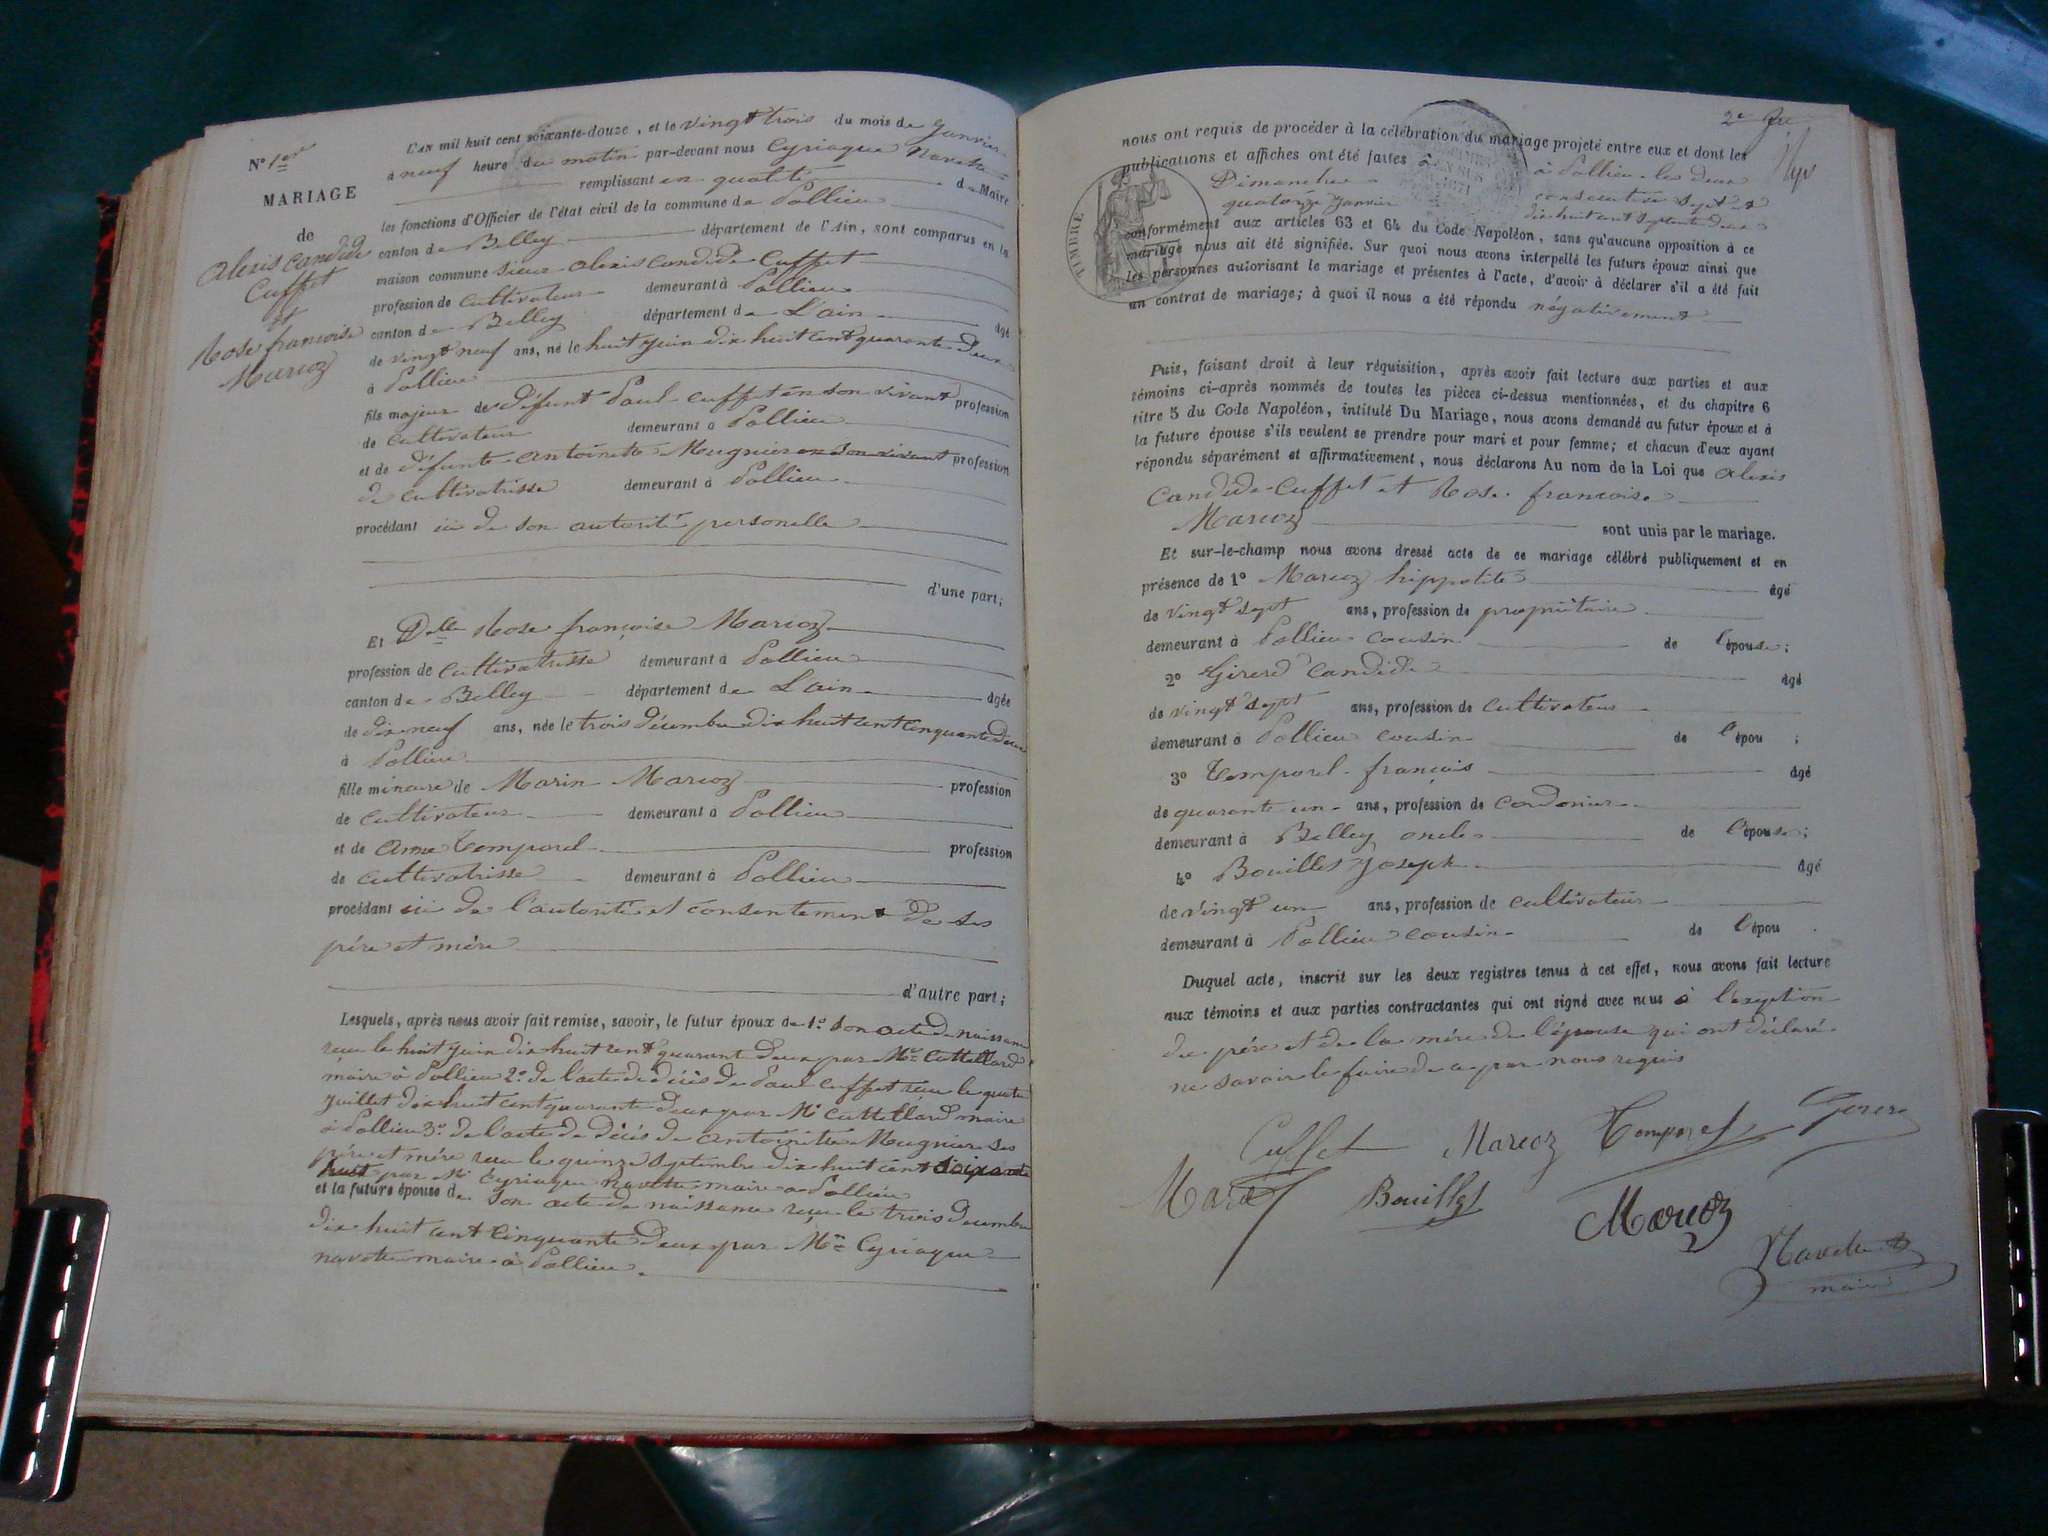 N° 1er
MARIAGE
de
Alexis Candide
Cuffet
et
Rose françoise
Marcoz
L'AN mil huit cent soixante-douze, et le vingt trois du mois de Janvier
à neuf heure du matin par-devant nous Cyriaque Navette
remplissant en qualité de Maire
les fonctions d'Officier de l'état civil de la commune de Pollieu
canton de Belley département de l'Ain, sont comparus en la
maison commune sieur alexis candide Cuffet
profession de cultivateur demeurant à Pollieu
canton de Belley département de L'ain âgé
de vingt neuf ans, né le huit juin dix huit cent quarante deux
à Pollieu
fils majeur de défunt Paul cuffet en son vivant profession
de cultivateur demeurant à Pollieu
et de défunte antoinette Meugnier en son vivant profession
de cultivatrisse demeurant à Pollieu
procédant ici de son autorité personelle
d'une part;
Et Delle Rose françoise Marcoz
profession de cultivatrisse demeurant à Pollieu
canton de Belley département de L'ain âgée
de dix neuf ans, née le trois décembre dix huit cent cinquante deux
à Pollieu
fille mineure de Marin Marcoz profession
de cultivateur demeurant à Pollieu
et de anne Temporel profession
de cultivatrisse demeurant à Pollieu
procédant ici de l'autorité et consentement de ses
père et mère
d'autre part;
Lesquels, après nous avoir fait remise, savoir, le futur époux de 1° son acte de naissance
reçu le huit juin dix huit cent quarante deux par Mr Cattellard
maire à Pollieu 2° de l'acte de décès de Paul cuffet reçu le quatre
juillet dix huit cent quarante deux par Mr Cattellard maire
à Pollieu 3° de l'acte de décès de antoinette Meugnier ses
père et mère reçu le quinze septembre dix huit cent soixante
huit par Mr Cyriaque navette maire à Pollieu
et la future épouse de son acte de naissance reçu le trois decembre
dix huit cent cinquante deux par Mr Cyriaque
navette maire à Pollieu.
2e
nous ont requis de procéder à la célébration du mariage projeté entre eux et dont les
publications et affiches ont été faites à Pollieu les deux
Dimanche consecutive sept &
quatorze janvier dix huit cent septente deux
conformément aux articles 63 et 64 du Code Napoléon, sans qu'aucune opposition à ce
mariage nous ait été signifiée. Sur quoi nous avons interpellé les futurs époux ainsi que
les personnes autorisant le mariage et présentes à l'acte, d'avoir à déclarer s'il a été fait
un contrat de mariage; à quoi il nous a été répondu négativement
TIMBRE
Puis, faisant droit à leur réquisition, après avoir fait lecture aux parties et aux
témoins ci-après nommés de toutes les pièces ci-dessus mentionnées, et du chapitre 6
titre 5 du Code Napoléon, intitulé Du Mariage, nous avons demandé au futur époux et à
la future épouse s'ils veulent se prendre pour mari et pour femme; et chacun d'eux ayant
répondu séparément et affirmativement, nous déclarons Au nom de la Loi que alexis
Candide Cuffet et Rose francoise
Marcoz sont unis par le mariage.
Et sur-le-champ nous avons dressé acte de ce mariage célébré publiquement et en
présence de 1° Marcoz hippolite âgé
de vingt sept ans, profession de propriétaire
demeurant à Pollieu cousin de l'épouse;
2° Girerd candide âgé
de vingt sept ans, profession de cultivateur
demeurant à Pollieu cousin de l'épou ;
3° Temporel françois âgé
de quarante un ans, profession de cordonier
demeurant à Belley oncle de l'épouse;
4° Bouillet Joseph âgé
de vingt un ans, profession de cultivateur
demeurant à Pollieu cousin de l'épou .
Duquel acte, inscrit sur les deux registres tenus à cet effet, nous avons fait lecture
aux témoins et aux parties contractantes qui ont signé avec nous à l'exeption
du père et de la mère de l'épouse qui ont déclaré
ne savoir le faire de ce par nous requis
Cuffet Marcoz Temporel Girerd
Bouillet Marcoz
Navette
maire